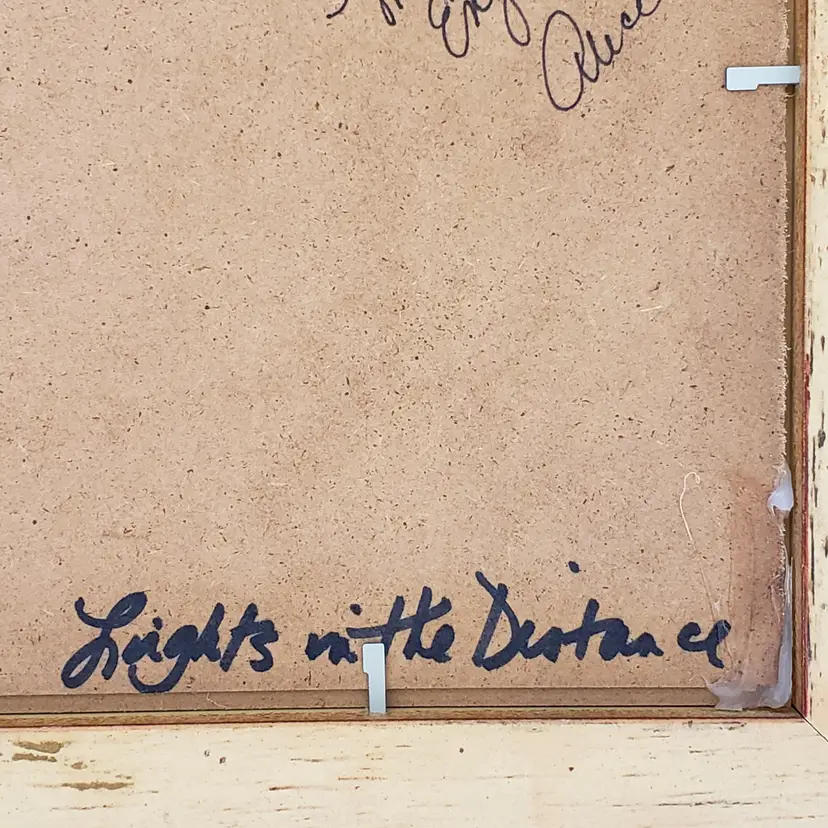 Alice
Lights in the Distance